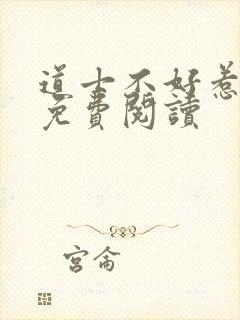 道士不好惹
免費閱讀
宮侖